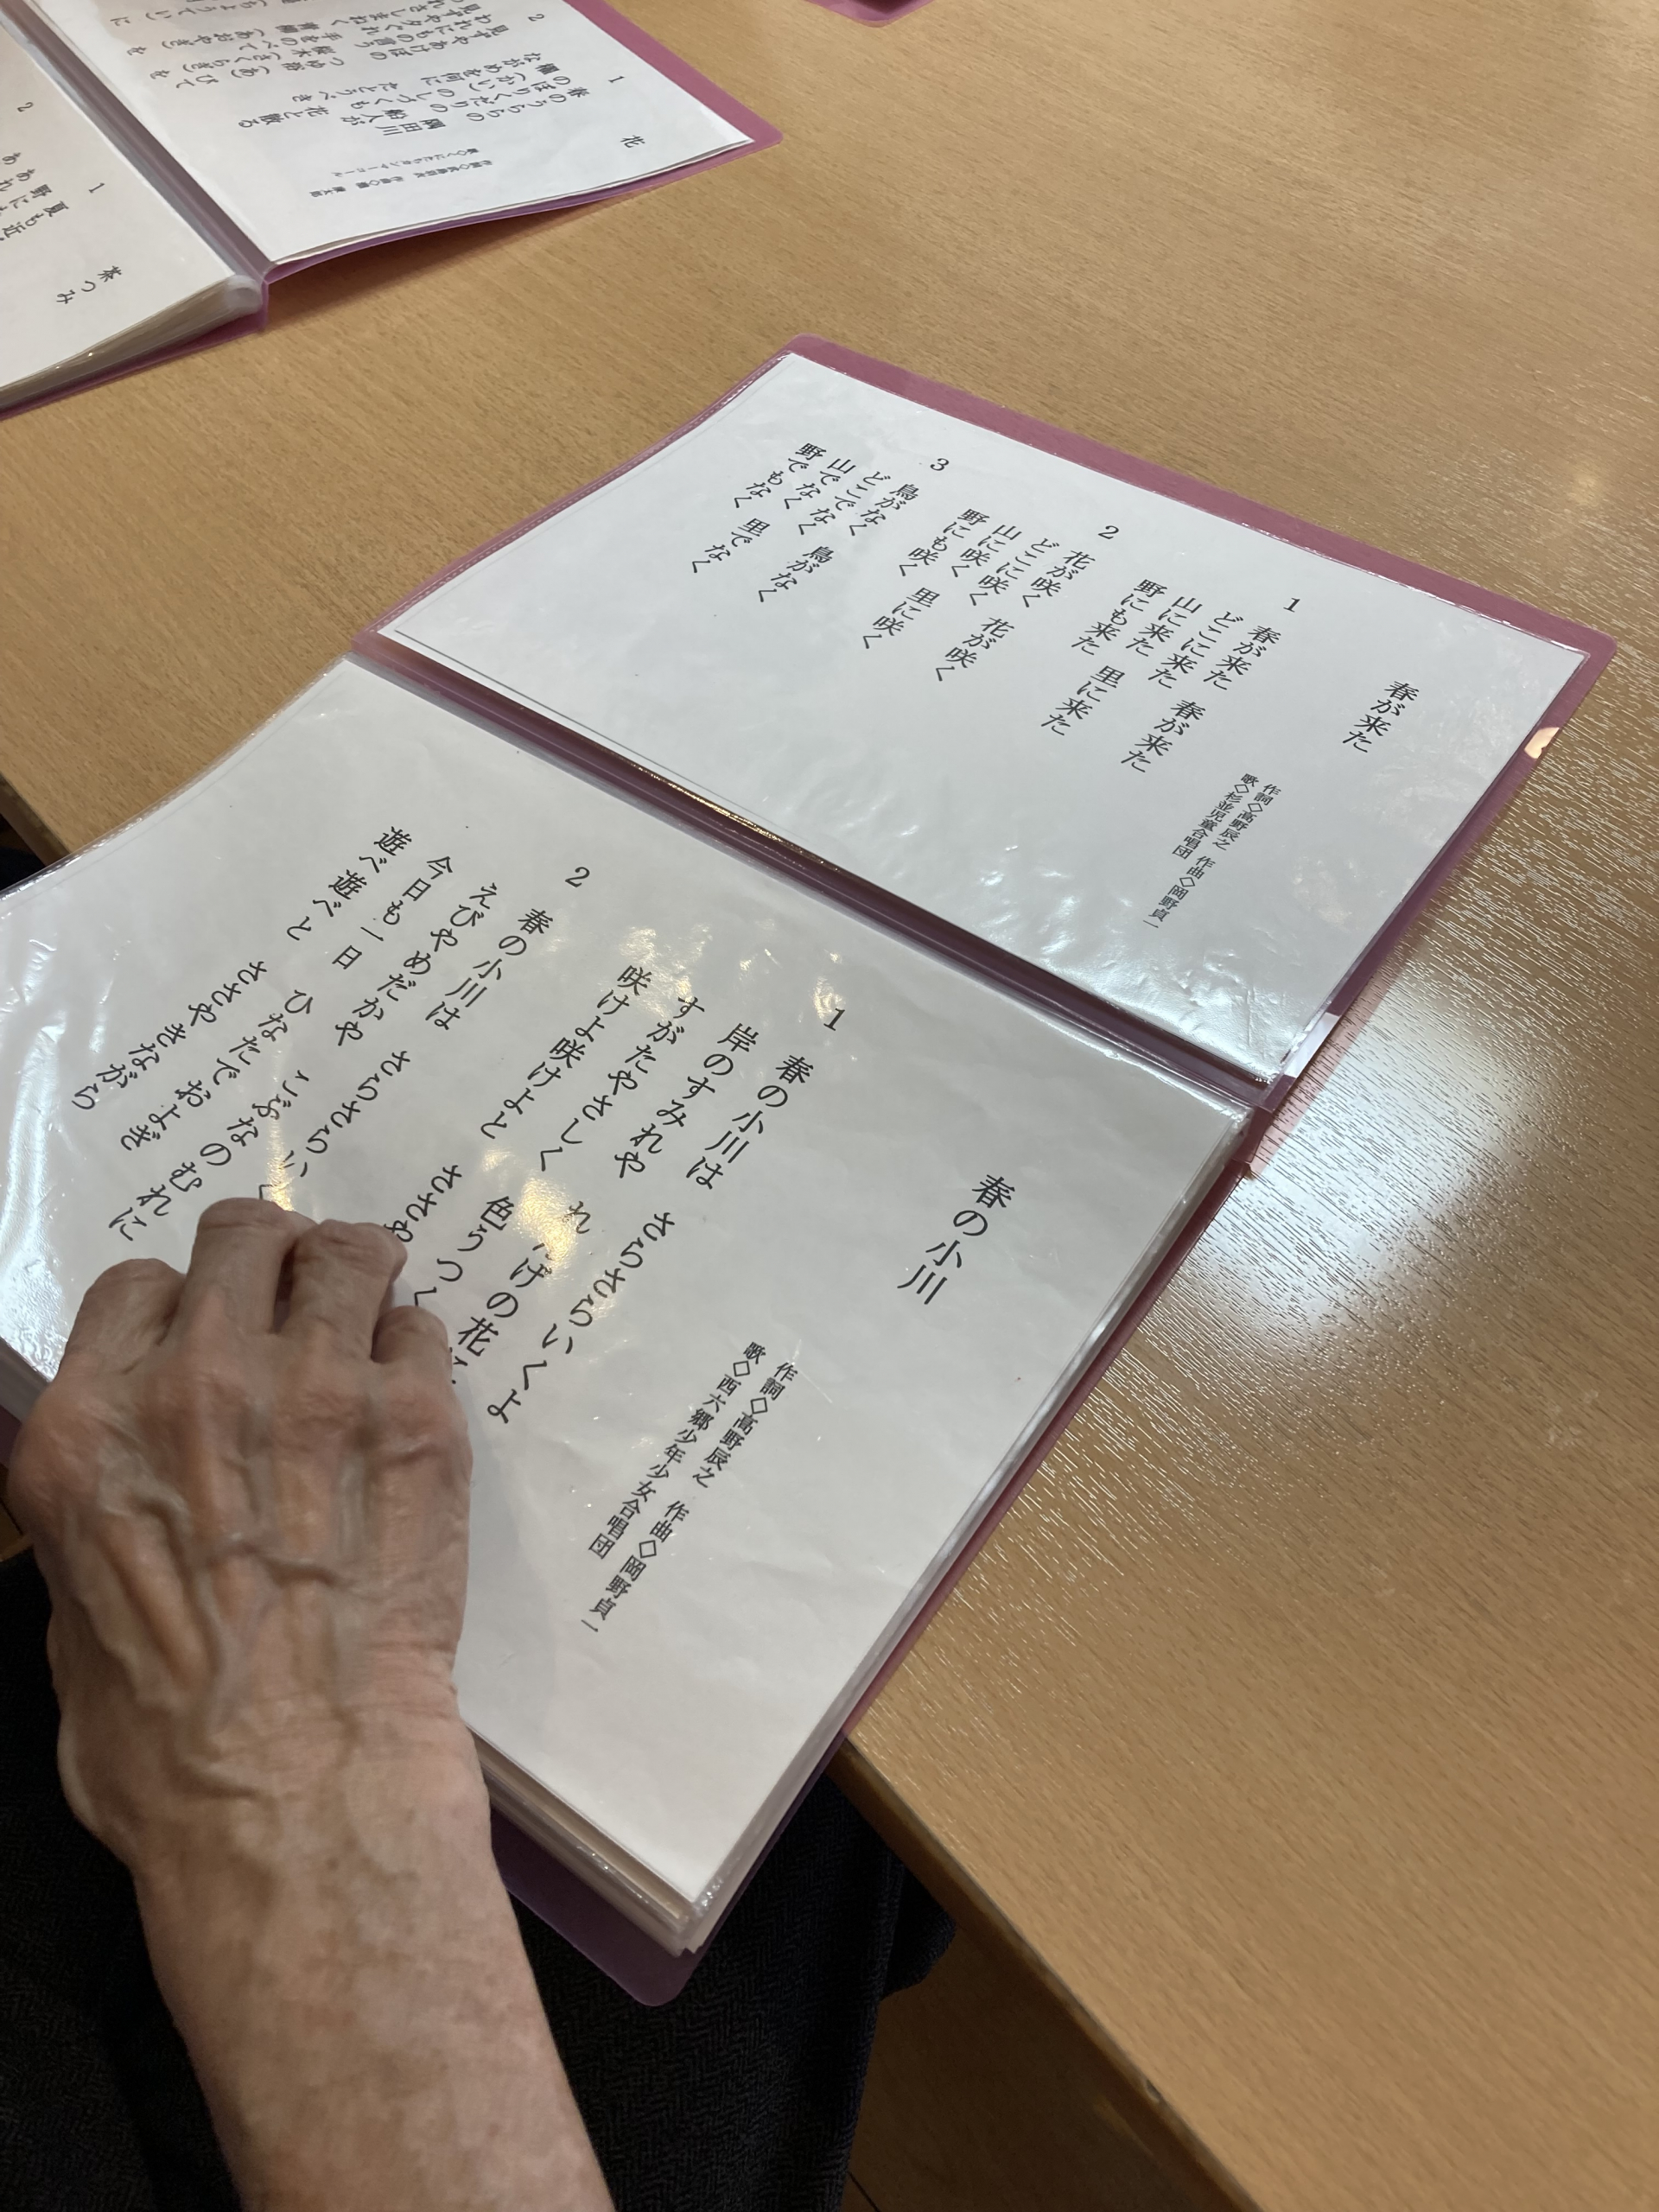 春が来た
作詞◇高野辰之 作曲◇岡野貞一
歌◇杉並児童合唱団
1
春が来た 春が来た
どこに来た
山に来た 里に来た
野にも来た
2
花が咲く 花が咲く
どこに咲く
山に咲く 里に咲く
野にも咲く
3
鳥がなく 鳥がなく
どこでなく
山でなく 里でなく
野でもなく
春の小川
作詞◇高野辰之 作曲◇岡野貞一
歌◇西六郷少年少女合唱団
1
春の小川は さらさらいくよ
岸のすみれや れ げの花
すがたやさしく 色うつく
咲けよ咲けよと ささや
2
春の小川は さらさらい
えびやめだかや こぶなのむれに
今日も一日 ひなたでおよぎ
遊べ遊べと ささやきながら
花
1
春のうららの 隅田川
のぼりくだりの 船人が
櫂(かい)のしづくも 花と散る
ながめを何に たとうべき
2
見ずやあけぼの つゆ浴(あ)びて
われにもの言う 桜木(さくらぎ)を
見ずや夕ぐれ 手をのべて
茶つみ
1
夏も近
野に
2